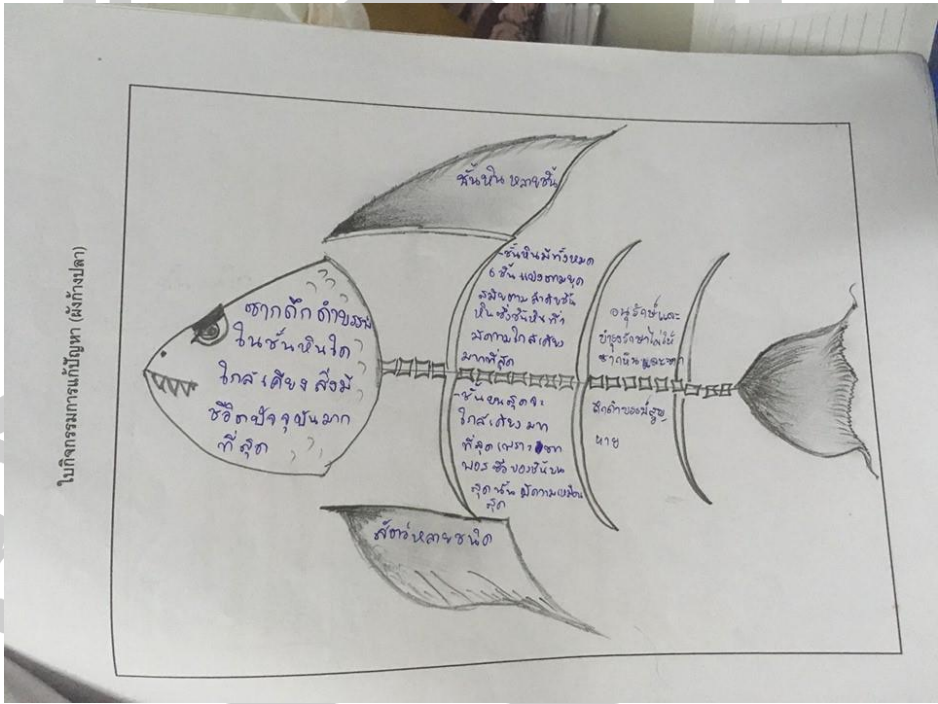 ใบกิจกรรมการแก้ปัญหา (ผังก้างปลา)
ชั้นหิน หลายชั้น
ซากดึกดำบรรพ์
ในชั้นหินใด
ใกล้เคียง สิ่งมี
ชีวิตปัจจุบันมาก
ที่สุด
-ชั้นหินมีทั้งหมด
6 ชั้น แบ่งตามยุค
สมัยตามลำดับชั้น
หินซึ่งชั้นหินที่
มีความใกล้เคียง
มากที่สุด
-ชั้นบนสุดจะ
ใกล้เคียงมาก
ที่สุดเพราะซาก
ฟอสซิลของชั้นบน
สุดนั้น มีความเหมือน
สุด
อนุรักษ์และ
บำรุงรักษาไม่ให้
ซากหินและซาก
ดึกดำบรรพ์สูญ
หาย
สัตว์หลายชนิด